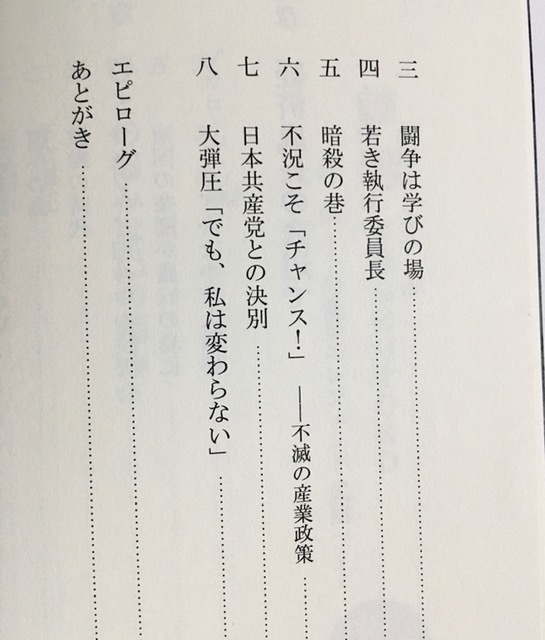 三　闘争は学びの場
四　若き執行委員長
五　暗殺の巷
六　不況こそ「チャンス！」――不滅の産業政策
七　日本共産党との決別
八　大弾圧「でも、私は変わらない」
エピローグ
あとがき